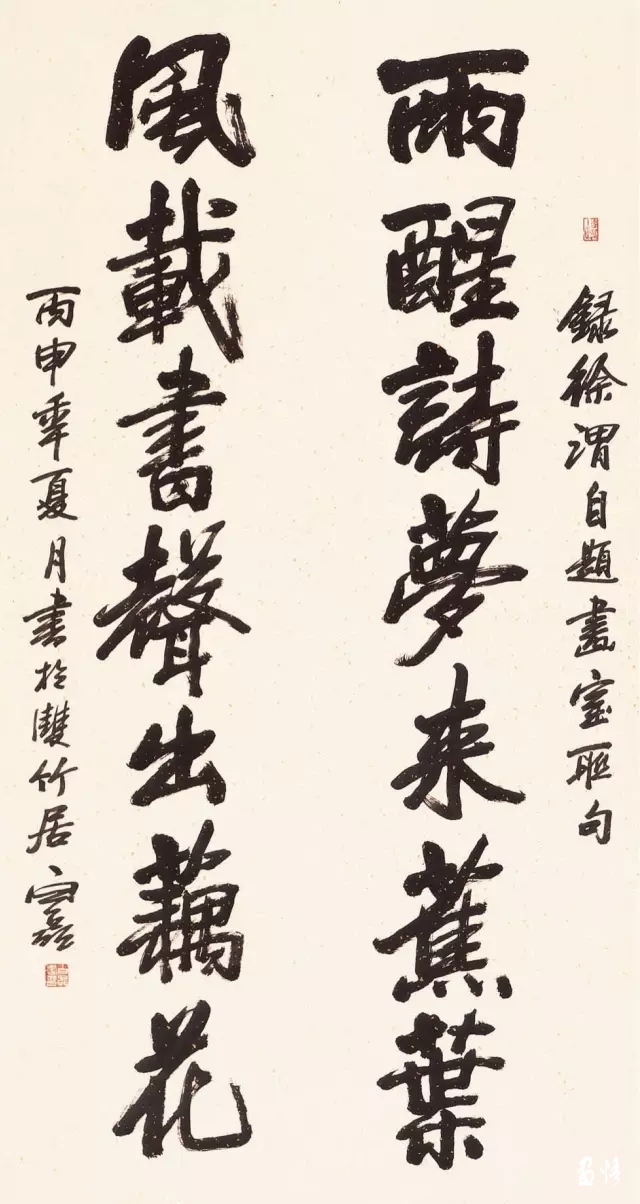 録徐渭自題畫室聯句
雨醒詩夢来蕉葉
風載書聲出藕花
丙申年夏月書於雙竹居